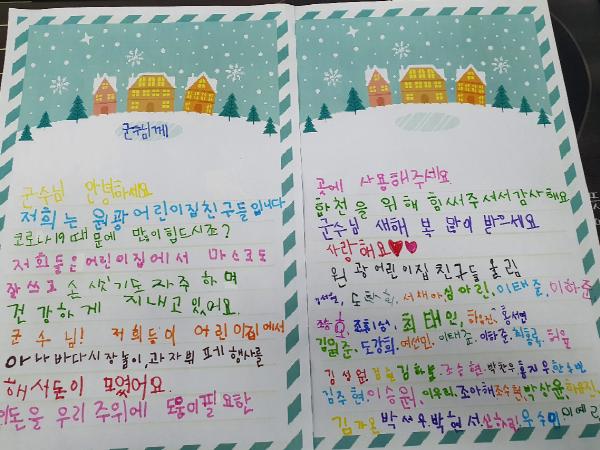 군수님께
군수님 안녕하세요
저희는 원광어린이집친구들입니다
코로나19 때문에 많이힘드시죠?
저희들은어린이집에서 마스크도
잘쓰고 손 씻기도 자주 하며
건강하게 지내고있어요.
군수님! 저희들이 어린이집에서
아나바다시장놀이,과자뷔페기행사를
해서돈이 모였어요.
이돈을 우리 주위에 도움이필요한
곳에 사용해주세요
합천을 위해 힘써주셔서감사해요
군수님 새해 복 많이 받으세요
사랑해요♥♥
원광어린이집 친구들 올림
심아린, 이태준, 이하준
조희성, 최태인, 홍서연
도강희, 여선민, 이태준, 이하준,
김성원, 조수현, 박찬우
김주현, 이승원, 이우리, 조아해, 조수현, 박상윤,
박서우, 박현서, 우수미